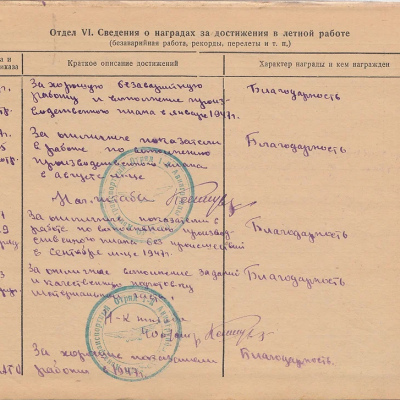 Отдел VI. Сведения о наградах за достижения в летной работе
(безаварийная работа, рекорды, перелеты и т. п.)
Краткое описание достижений
Характер награды и кем награжден
За хорошую безаварийную
работу и выполнение произ-
водственного плана в январе 1947г.
Благодарность
За отличные показатели
в работе по выполнению
производственного плана
в августе м-це
Благодарность
Нач. штаба
За отличные показатели в
работе по выполнению производ-
ственного плана без происшествий
в сентябре м-це 1947г.
Благодарность
За отличное выполнение заданий
и качественную подготовку
материальной
Благодарность
Н-к штаба
За хорошие показатели
работы 1947г.
Благодарность.